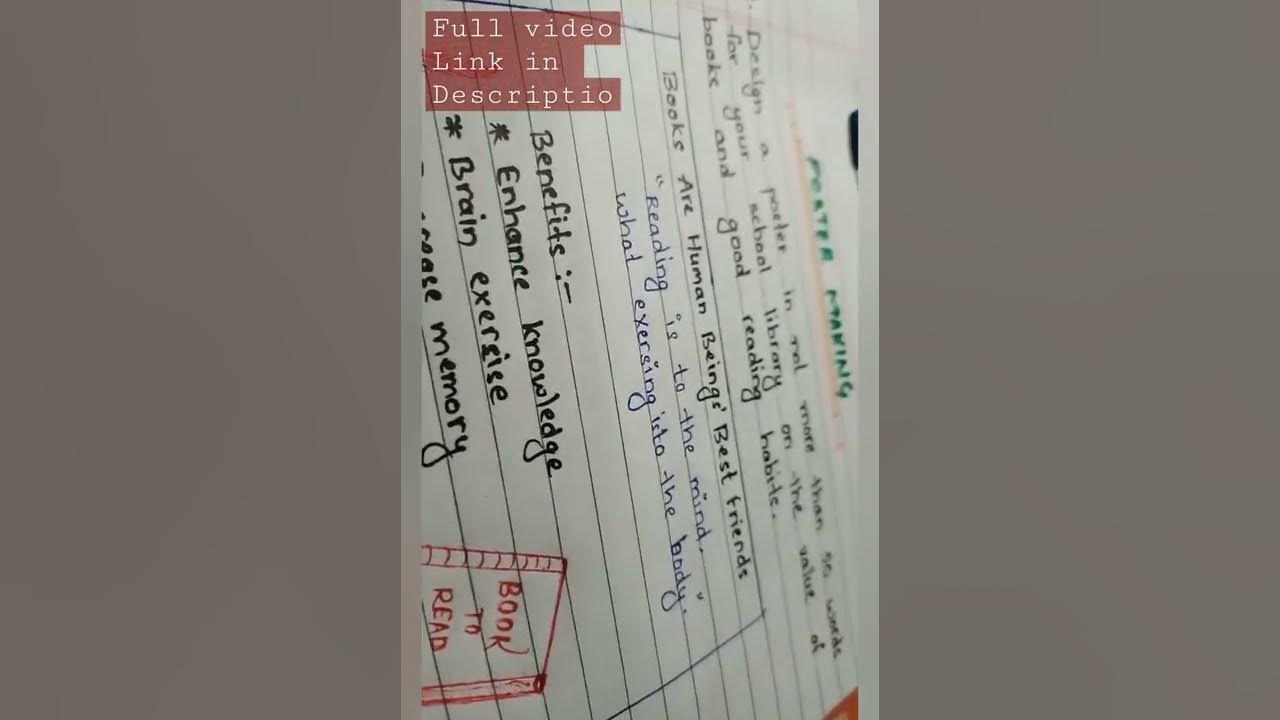 Full video
Link in
Descriptio
POSTER MAKING
Design a poster in not more than 50 words
for your school library on the value of
books and good reading habits.
Books Are Human Beings' Best friends
"Reading is to the mind,"
what exersing is to the body.
Benefits :-
* Enhance knowledge
* Brain exersise
memory
BOOK
TO
READ